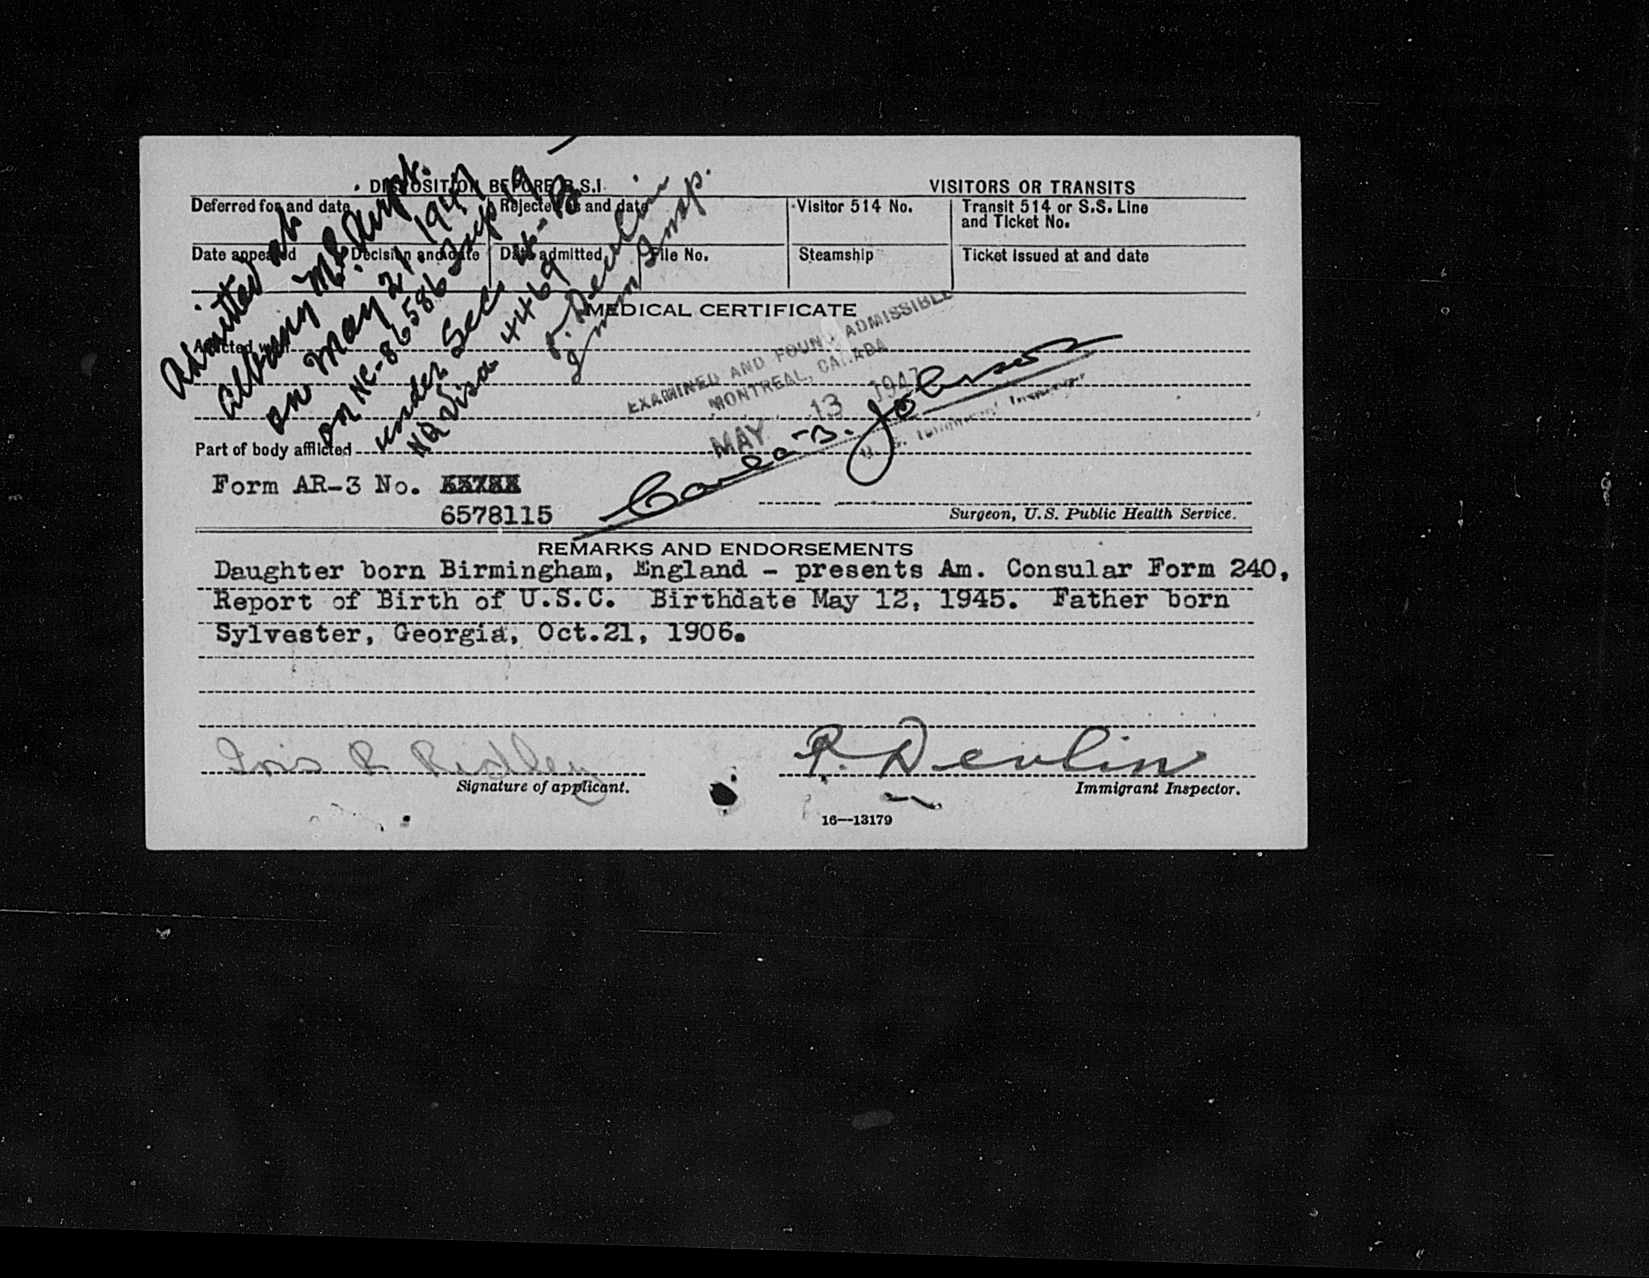 DISPOSITION BEFORE B.S.I.
VISITORS OR TRANSITS
Deferred for and date
Rejected as and date
Visitor 514 No.
Transit 514 or S.S. Line
and Ticket No.
Date appeared
Decision and date
Date admitted
File No.
Steamship
Ticket issued at and date
Admitted at
Albany Airpt.
on May 21 1947
on NC-86586
under Sec. 4-B
NQ Visa 4469
P. Devlin
Imm Insp.
MEDICAL CERTIFICATE
Afflicted with
EXAMINED AND FOUND ADMISSIBLE
MONTREAL, CANADA
MAY 13 1947
B. Johnson
U. S. Immigrant Inspector
Part of body afflicted
Form AR-3 No.
6578115
Surgeon, U.S. Public Health Service.
REMARKS AND ENDORSEMENTS
Daughter born Birmingham, England - presents Am. Consular Form 240,
Report of Birth of U.S.C. Birthdate May 12, 1945. Father born
Sylvester, Georgia, Oct.21, 1906.
Iris R Ridley
P. Devlin
Signature of applicant.
Immigrant Inspector.
16—13179